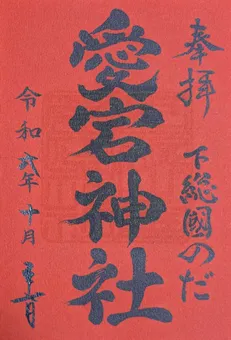 奉拝
下総國のだ
愛宕神社
令和弐年十月